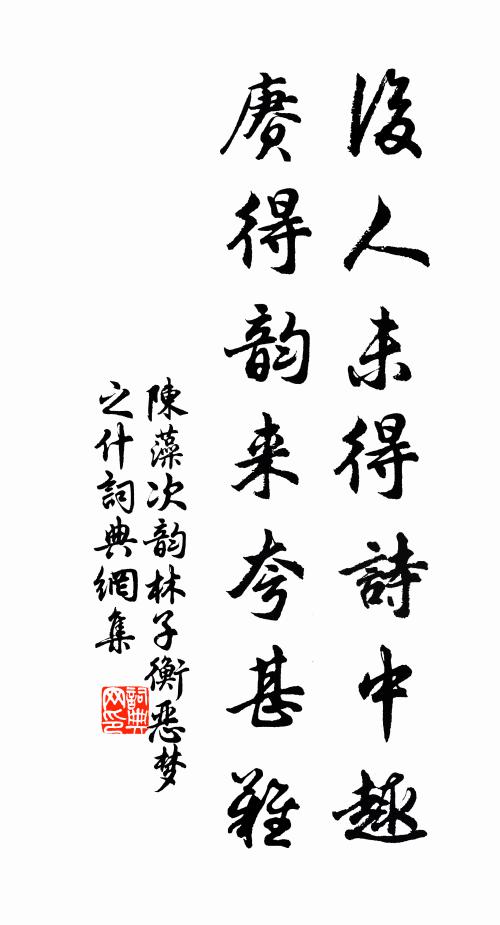 後人未得詩中趣
賡得韵来夸甚難
陳藻次韵林子衡恶梦
之什詞典網集
詞典网印